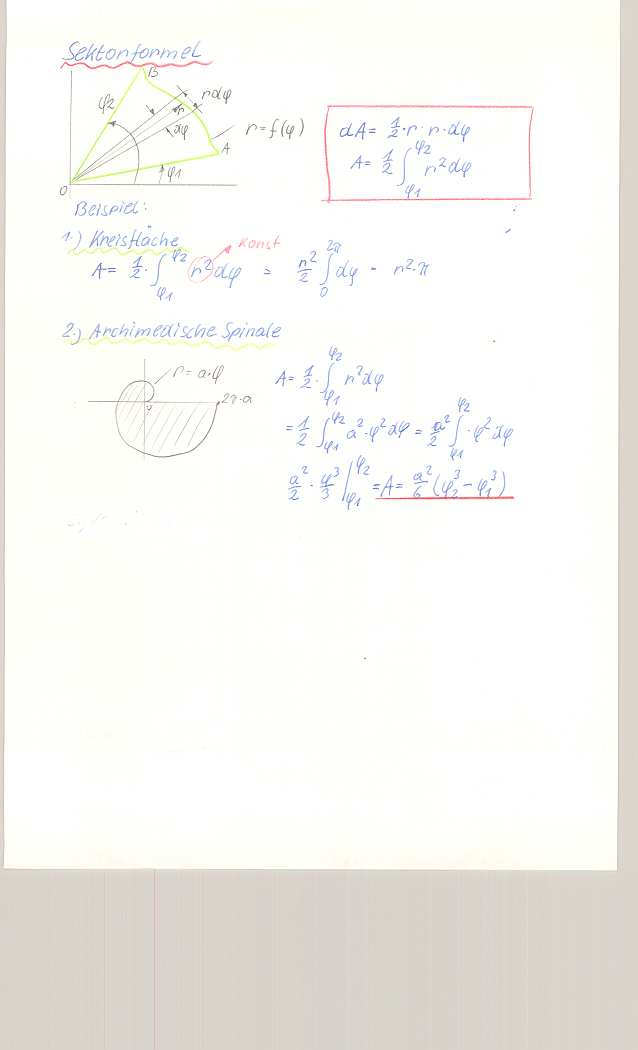 Sektorformel
B
φ2
r dφ
r
dφ
r = f(φ)
A
φ1
O
dA = 1/2 · r · r · dφ
A = 1/2 ∫φ1^φ2 r² dφ
Beispiel:
1.) Kreisfläche
konst
A = 1/2 · ∫φ1^φ2 r² dφ = r²/2 ∫0^2π dφ = r² · π
2.) Archimedische Spirale
r = a·φ
2π·a
A = 1/2 · ∫φ1^φ2 r² dφ
= 1/2 ∫φ1^φ2 a² · φ² dφ = a²/2 ∫φ1^φ2 · φ² dφ
a²/2 · φ³/3 |φ1^φ2 = A = a²/6 (φ2³ − φ1³)